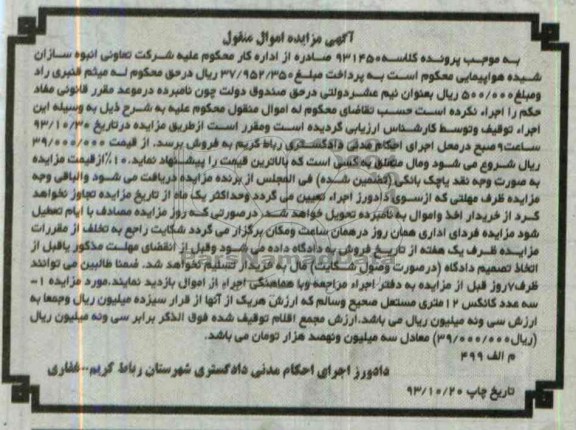 آگهی مزایده اموال منقول
به موجب پرونده کلاسه ۹۳۱۴۵۰ صادره از اداره کار محکوم علیه شرکت تعاونی انبوه سازان
شیده هواپیمایی محکوم است به پرداخت مبلغ ۳۷/۹۵۲/۳۵۰ ریال درحق محکوم لـه میثم قنبری راد
ومبلغ ۵۰۰/۰۰۰ ریال بعنوان نیم عشردولتی درحق صندوق دولت چون نامبرده درموعد مقرر قانونی مفاد
حکم را اجراء نکرده است حسب تقاضای محکوم له اموال منقول محکوم علیه به شرح ذیل به وسیله این
اجراء توقیف وتوسط کارشناس ارزیابی گردیده است ومقرر است ازطریق مزایده درتاریخ ۹۳/۱۰/۳۰
ساعت ۹ صبح درمحل اجرای احکام مدنی دادگستری رباط کریم به فروش برسد. از قیمت ۳۹/۰۰۰/۰۰۰
ریال شروع می شود ومال متعلق به کسی است که بالاترین قیمت را پیشنهاد نماید.۱۰٪ازقیمت مزایده
به صورت وجه نقد یاچک بانکی (تضمین شده) فی المجلس از برنده مزایده دریافت می شود والباقی وجه
مزایده ظرف مهلتی که ازسوی دادورز اجراء تعیین می گردد وحداکثر یک ماه از تاریخ مزایده تجاوز نخواهد
کرد از خریدار اخذ واموال به نامبرده تحویل خواهد شد. درصورتی که روز مزایده مصادف با ایام تعطیل
شود مزایده فردای اداری همان روز درهمان ساعت ومکان برگزار می گردد شکایت راجع به تخلف از مقررات
مزایده ظرف یک هفته از تاریخ فروش به دادگاه داده می شود وقبل از انقضای مهلت مذکور یاقبل از
اتخاذ تصمیم دادگاه (درصورت وصول شکایت) مال به خریدار تسلیم نخواهد شد. ضمنا طالبین می توانند
ظرف ۷ روز قبل از مزایده به دفتر اجراء مراجعه وبا هماهنگی اجراء از اموال بازدید نمایند.مورد مزایده ۱-
سه عدد کانکس ۱۲ متری مستعمل صحیح وسالم که ارزش هریک از آنها از قرار سیزده میلیون ریال وجمعا به
ارزش سی ونه میلیون ریال می باشد.ارزش مجمع اقلام توقیف شده فوق الذکر برابر سی ونه میلیون ریال
(ریال۳۹/۰۰۰/۰۰۰) معادل سه میلیون ونهصد هزار تومان می باشد.
م الف ۴۹۹
دادورز اجرای احکام مدنی دادگستری شهرستان رباط کریم--غفاری
تاریخ چاپ ۹۳/۱۰/۲۰
ParsNamadData